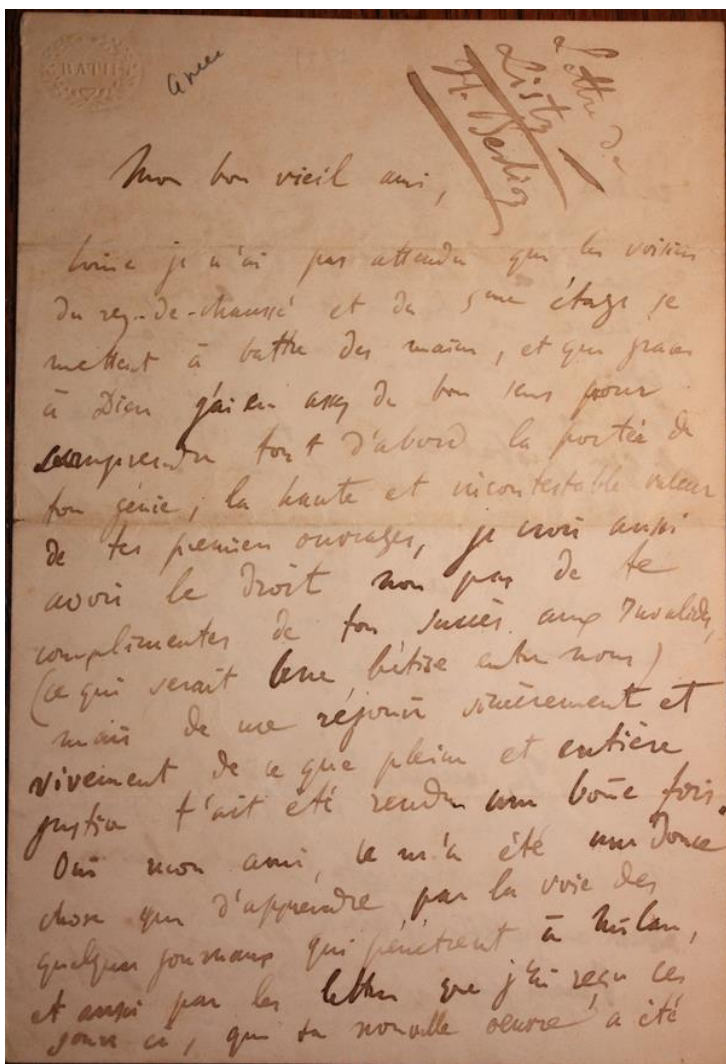 BATH
Lettre de
Listz
H. Berlioz
Mon bon vieil ami,
je n'ai pas attendu que les voisins
du rez-de-chaussé et du 5me étage se
mettent à battre des mains, et que grace
à Dieu j'ai eu assez de bon sens pour
comprendre tout d'abord la portée de
ton génie, la haute et incontestable valeur
de tes premiers ouvrages, je crois aussi
avoir le droit non pas de te
complimenter de ton succès aux Invalides,
(ce qui serait une bêtise entre nous)
mais de me réjouir sincèrement et
vivement de ce que pleine et entière
justice t'ait été rendue une bone fois.
Oui mon ami, ce m'a été une douce
chose que d'apprendre par la voie des
quelques journaux qui pénètrent à Milan,
et aussi par les lettres que j'ai reçu ces
jours ci, que ta nouvelle oeuvre a été